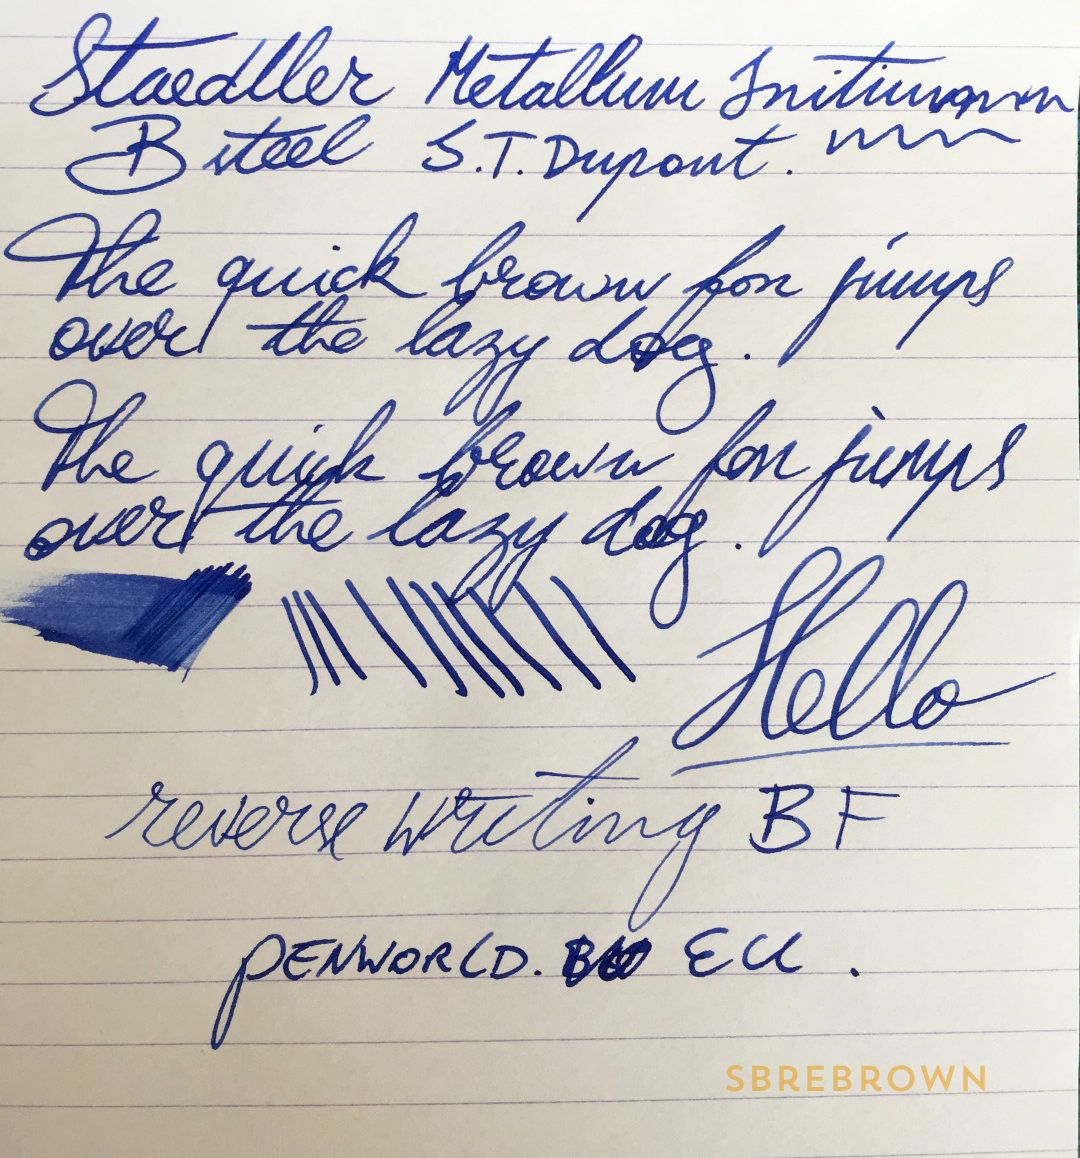 Staedtler Metallum Initium
B steel S.T. Dupont.
The quick brown fox jumps
over the lazy dog.
The quick brown fox jumps
over the lazy dog.
Hello
reverse writing BF
PENWORLD. EU.
SBREBROWN